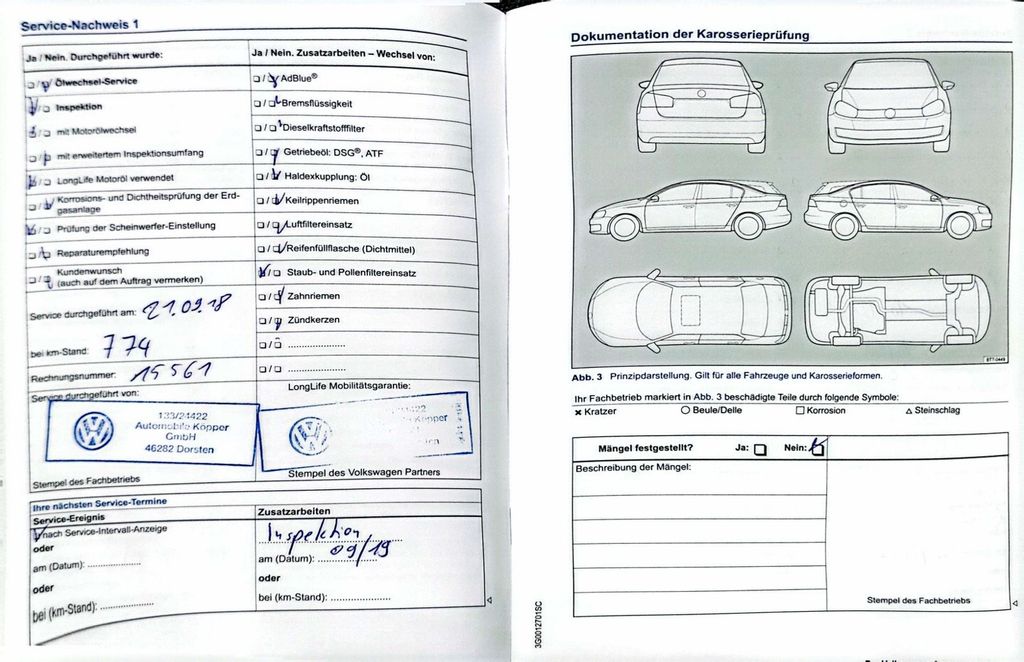 Service-Nachweis 1
Ja / Nein. Durchgeführt wurde:
Ölwechsel-Service
Inspektion
mit Motorölwechsel
mit erweitertem Inspektionsumfang
LongLife Motoröl verwendet
Korrosions- und Dichtheitsprüfung der Erd-
gasanlage
Prüfung der Scheinwerfer-Einstellung
Reparaturempfehlung
Kundenwunsch
(auch auf dem Auftrag vermerken)
Service durchgeführt am: 21.09.18
bei km-Stand: 774
Rechnungsnummer: 15561
Service durchgeführt von:
133/24422
Automobile Köpper
GmbH
46282 Dorsten
Stempel des Fachbetriebs
Ja / Nein. Zusatzarbeiten – Wechsel von:
AdBlue®
Bremsflüssigkeit
Dieselkraftstofffilter
Getriebeöl: DSG®, ATF
Haldexkupplung: Öl
Keilrippenriemen
Luftfiltereinsatz
Reifenfüllflasche (Dichtmittel)
Staub- und Pollenfiltereinsatz
Zahnriemen
Zündkerzen
LongLife Mobilitätsgarantie:
Köpper
Stempel des Volkswagen Partners
Ihre nächsten Service-Termine
Service-Ereignis
nach Service-Intervall-Anzeige
oder
am (Datum): ....................
oder
bei (km-Stand): ....................
Zusatzarbeiten
Inspektion
am (Datum): 09/19
oder
bei (km-Stand): ....................
Dokumentation der Karosserieprüfung
Abb. 3 Prinzipdarstellung. Gilt für alle Fahrzeuge und Karosserieformen.
Ihr Fachbetrieb markiert in Abb. 3 beschädigte Teile durch folgende Symbole:
Kratzer Beule/Delle Korrosion Steinschlag
Mängel festgestellt? Ja: Nein:
Beschreibung der Mängel:
Stempel des Fachbetriebs
3G0012701SC